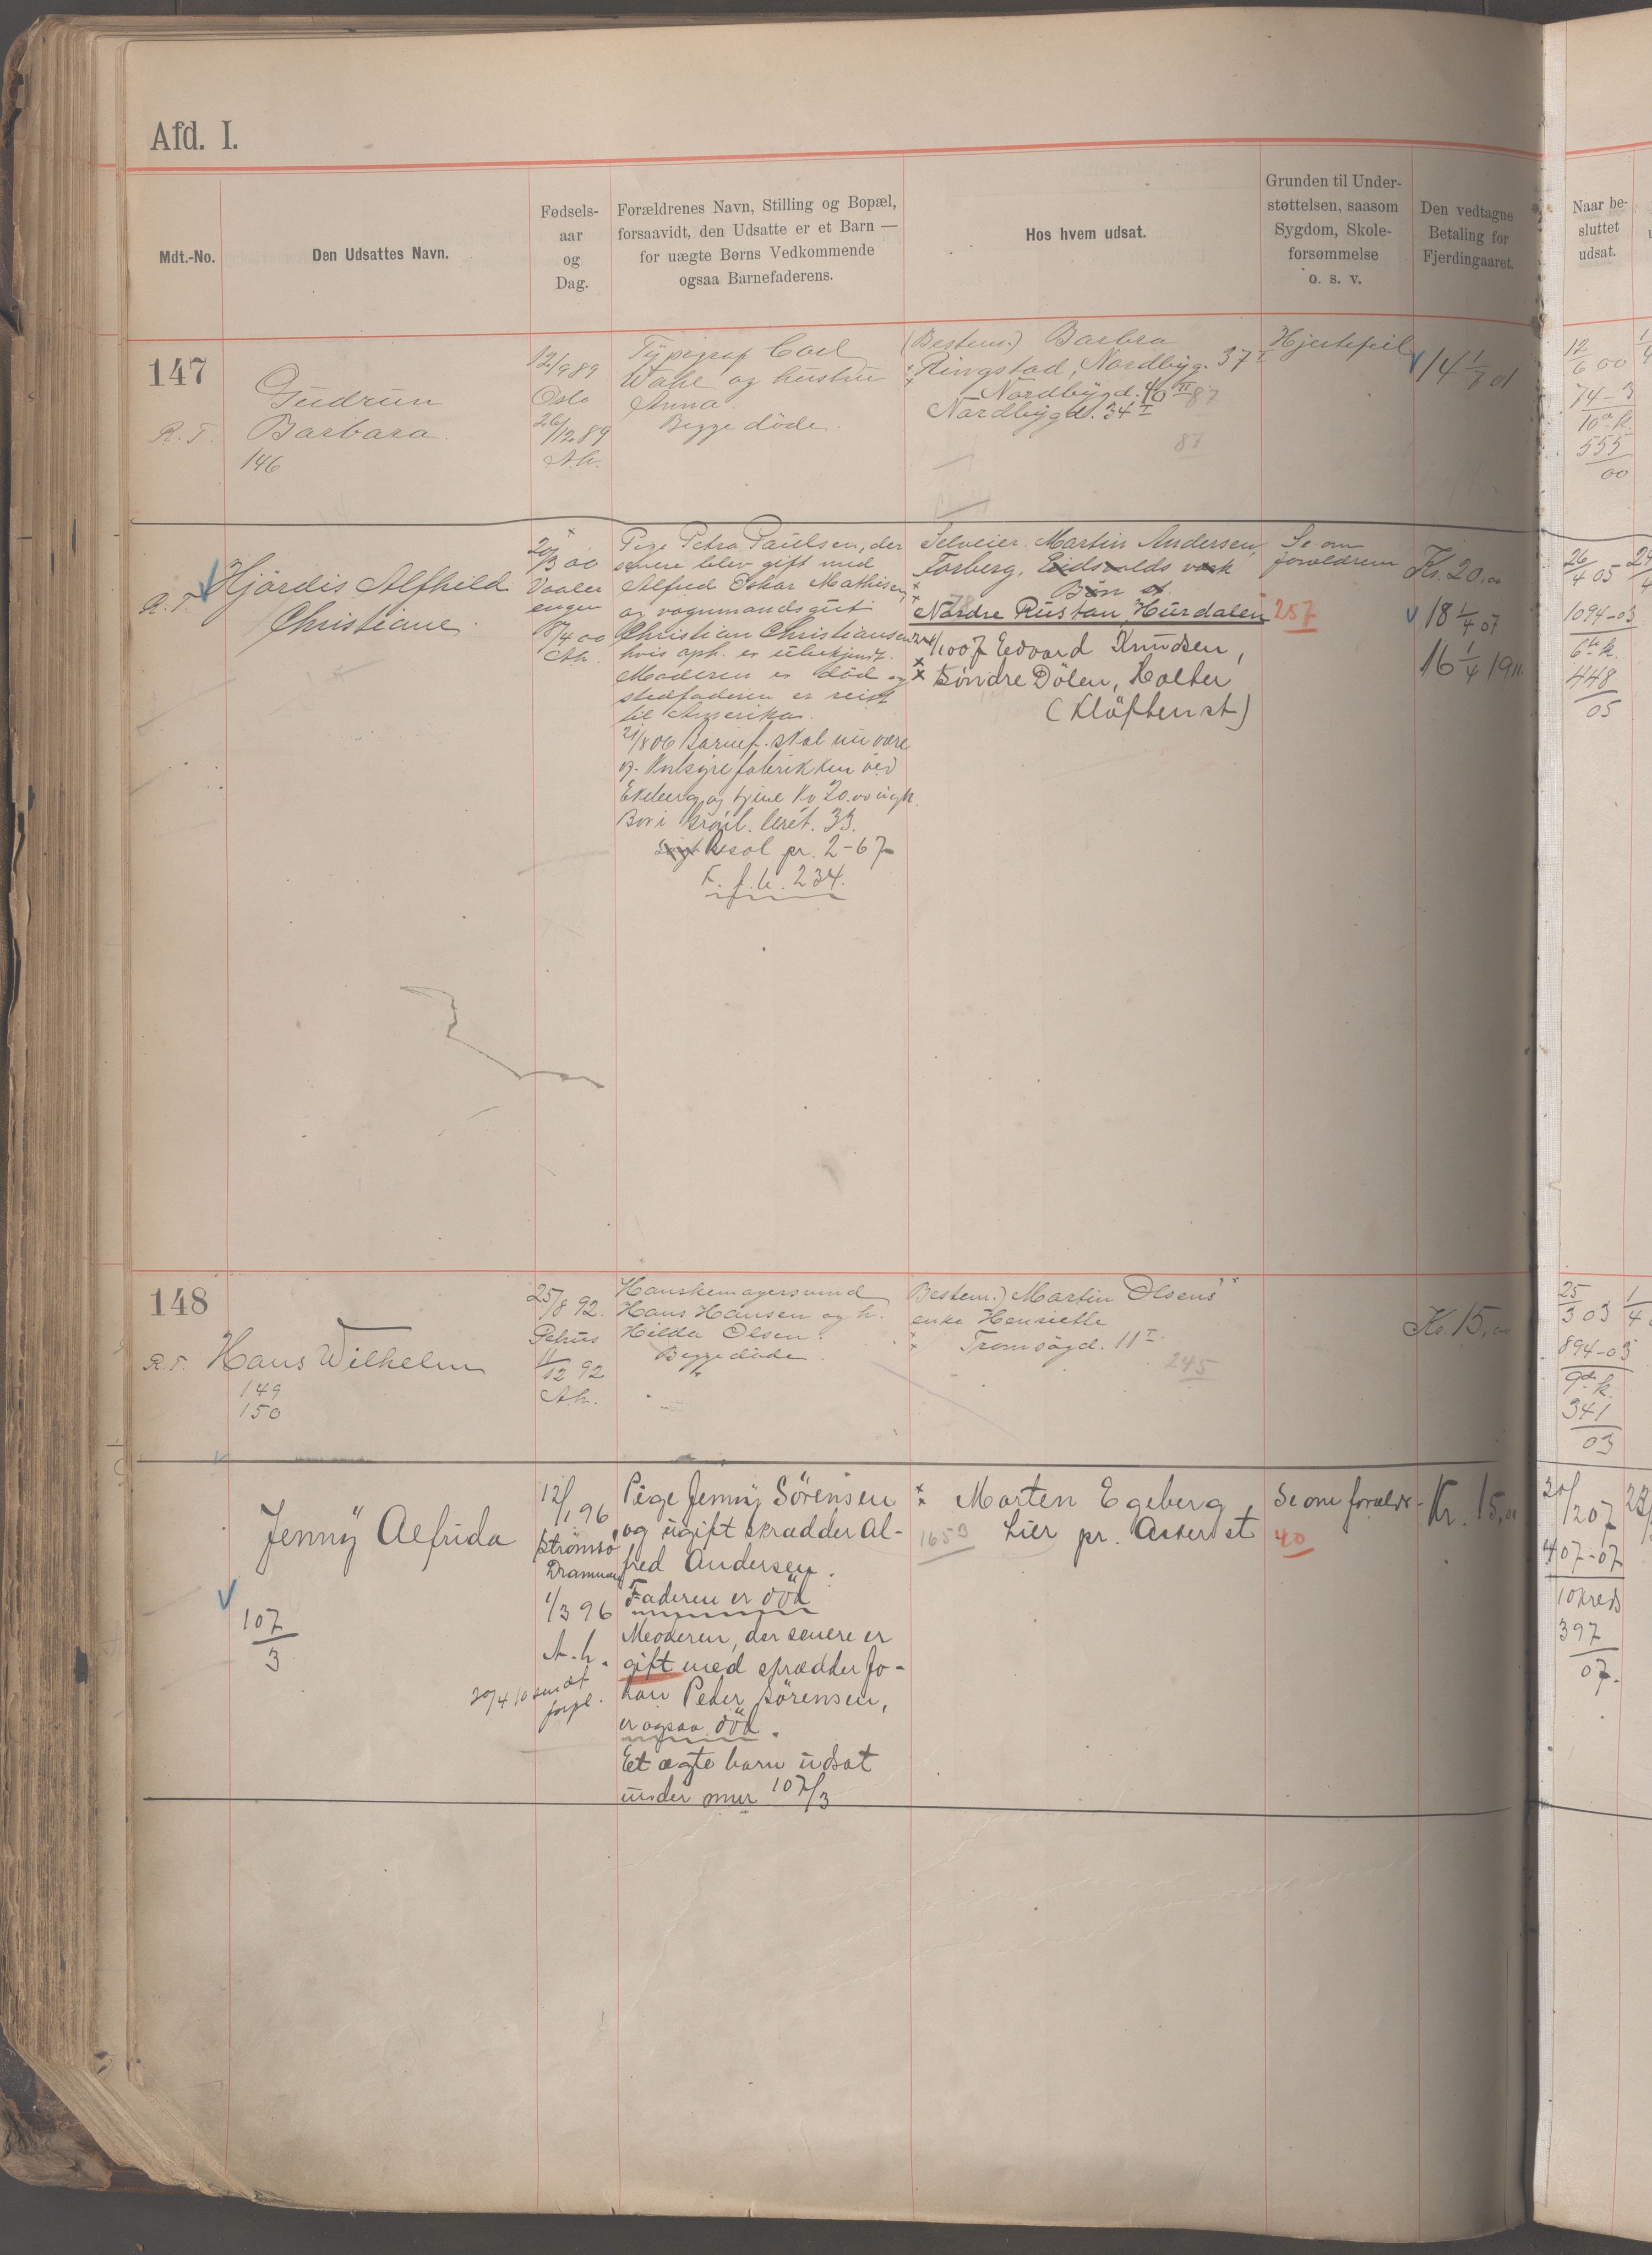 Afd. I.
Mdt.-No.
Den Udsattes Navn.
Fødsels-
aar
og
Dag.
Forældrenes Navn, Stilling og Bopæl,
forsaavidt, den Udsatte er et Barn —
for uægte Børns Vedkommende
ogsaa Barnefaderens.
Hos hvem udsat.
Grunden til Under-
støttelsen, saasom
Sygdom, Skole-
forsømmelse
o. s. v.
Den vedtagne
Betaling for
Fjerdingaaret.
Naar be-
sluttet
udsat.
147
R. T.
Gudrun
Barbara
146
12/9 89
Oslo
26/12 89
A.k.
Typograf Carl
Wahl og hustru
Anna.
Begge døde.
(Bestem.) Barbra
Ringstad, Nordbyg. 37 I
Nordbygd. 40 II 87
Nordbygd. 34 I
87
Hjertefeil
14 1/7 01
12/6 00
74-3
10de k.
555
00
R. T.
Hjördis Alfhild
Christiane
20/3 00
Vaaler
engen
15/4 00
Ak.
Pige Petra Paulsen, der
senere blev gift med
Alfred Oskar Mathisen,
og vognmandsgut
Christian Christiansen
hvis oph. er ubekjendt.
Moderen er død og
stedfaderen er reist
til Amerika.
21/8 06 Barnef. skal nu være
Ekeberg og tjene Kr 20.00 ugtl.
Bor i
resol pr. 2-67
F. f. b. 234.
Selveier Martin Andersen,
Forberg, Eidsvolds værk
Bøn st.
78
Nordre Rustan, Hurdalen 257
24/10 07 Edvard Knudsen,
Søndre Dølen, Holter
(Kløften st)
Se om
forældrene
Kr. 20,00
18 1/4 07
16 1/4 1911
26/4 05
1094-03
6te k.
448
05
148
R. T.
Hans Wilhelm
149
150
25/8 92.
Petrus
11/12 92
Ak.
Hanskemagersvend
Hans Hansen og h.
Hilda Olsen.
Begge døde.
Bestem.) Martin Olsens
enke Henriette
Tromsøgd. 11 I
245
Kr. 15,00
25/3 03
894-03
9de k.
341
03
Jenny Alfrida
107
3
12/1 96
Strømsø
Drammen
1/3 96
A.k.
20/4 10 sendt
forpl.
Pige Jenny Sörensen
og ugift skrædder Al-
fred Andersen.
Faderen er död
Moderen, der senere er
gift med skrædder Jo-
han Peder Sörensen,
er ogsaa död.
Et ægte barn udsat
under mnr 107/3
Morten Egeberg,
Lier pr. Asker st
165
Se om foreldr-
40
Kr. 15,00
20/12 07
407-07
10 kreds
397
07.